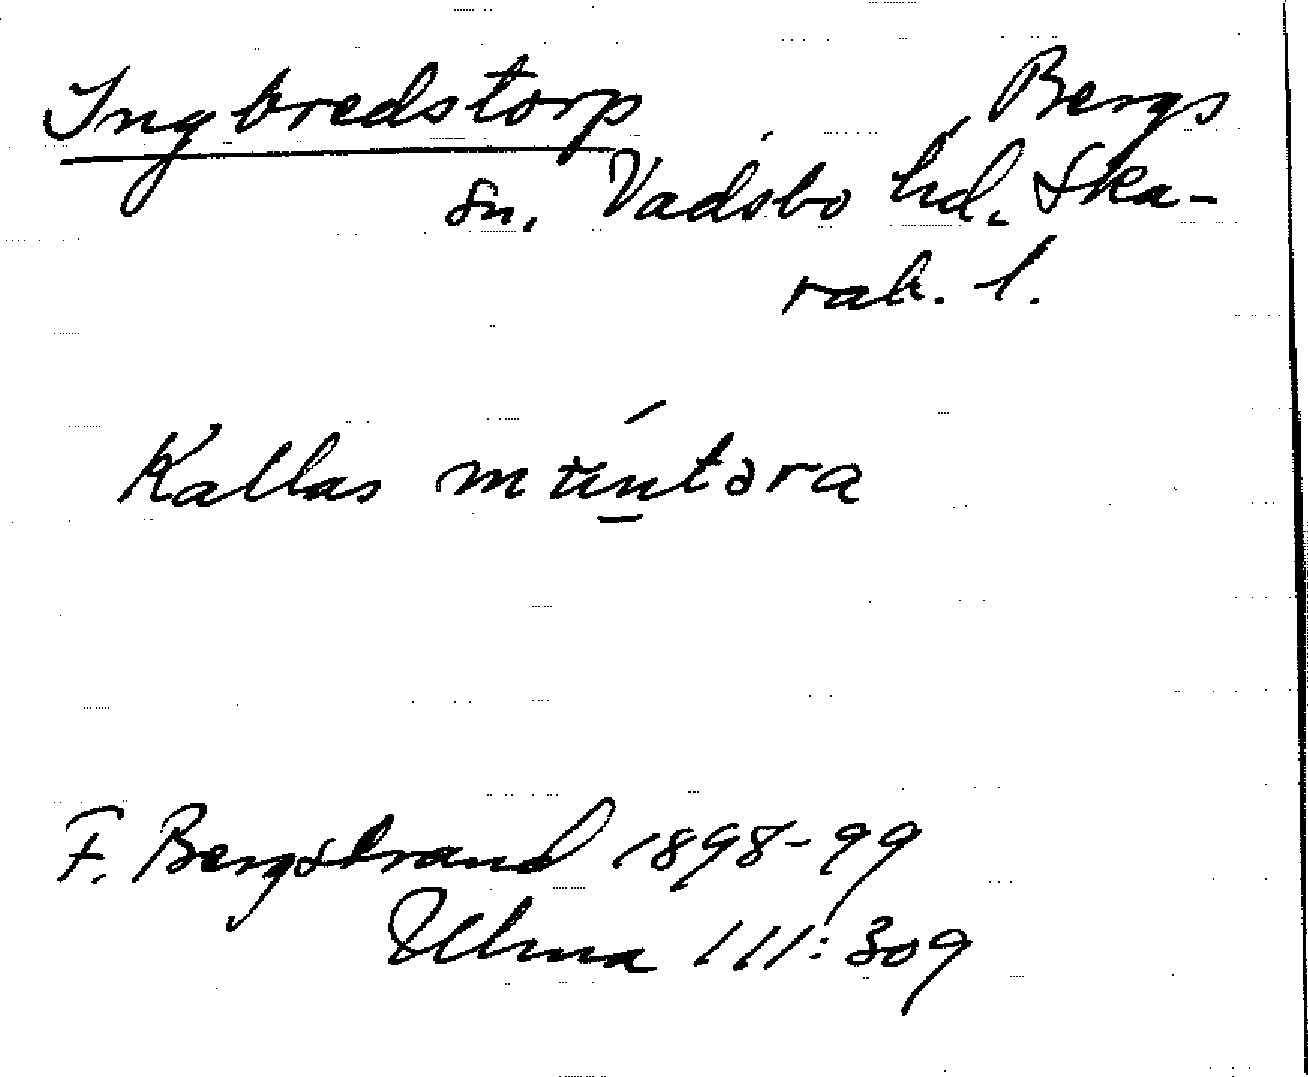 Ingbredstorp Bergs
sn. Vadsbo hd. Ska-
rab. l.
Kallas
F. Bergstrand 1898-99
Ulma 111:309